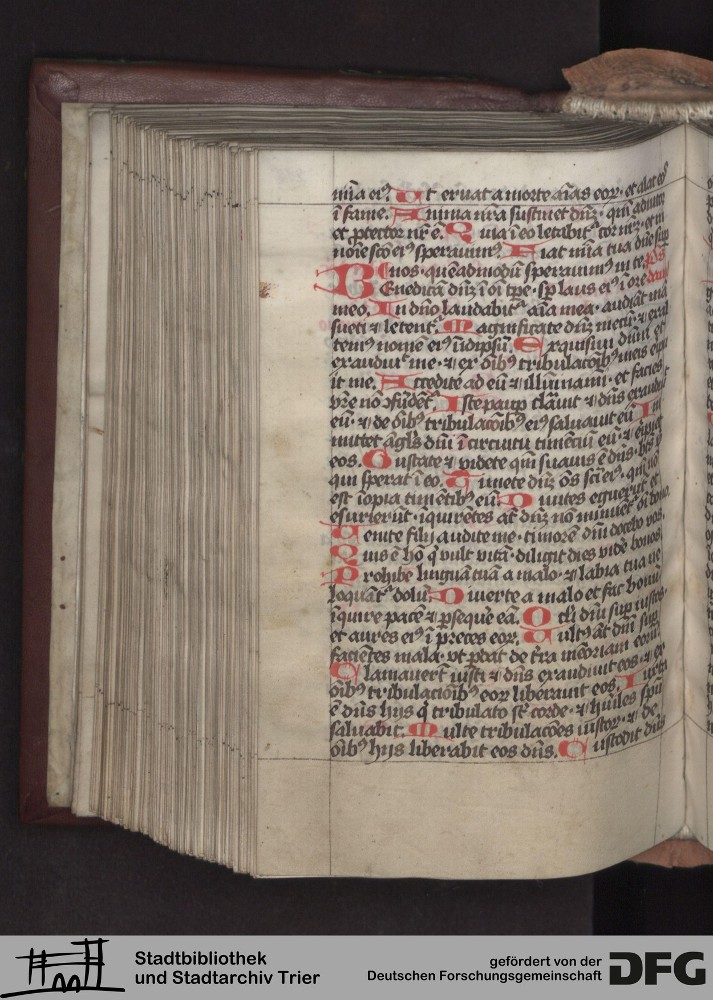 mīa eiꝰ Ut eruat a morte aīas eoꝝ · et alat eos
ī fame. Anima nr̄a sustinet dn̄m · qm̄ adiutor
et ꝓtector nr̄ ē. Quia ī eo letabit᷑ cor nr̄m · et in
noīe sc̄o eiꝰ sperauimꝰ. Fiat mīa tua dn̄e sup
nos · quēadmodū sperauimꝰ in te. Pꝰ
Benedicā dn̄m ī oī tp̄e · sp̄ laus eiꝰ ī ore dauid
meo. In dn̄o laudabit᷑ aīa mea · audiāt mā
sueti ⁊ letent᷑. Magnificate dn̄m mecū · ⁊ exal
temꝰ nomē eiꝰ ī idipsū. Exquisiui dn̄m et
exaudiuit me · ⁊ ex oībꝰ tribulacōibꝰ meis eripu
it me. Accedite ad eū ⁊ illūmami · et facies
vr̄e nō ↄfūdēt᷑. Iste paup̄ clāuit ⁊ dn̄s exaudiuit
eū · ⁊ de oībꝰ tribulacōibꝰ eiꝰ saluauit eū Im
mittet āgl̄s dn̄i ī circuitu timēciū eū · ⁊ eripiet
eos. Gustate ⁊ videte qm̄ suauis ē dn̄s · btūs vir
qui sperat ī eo. Timete dn̄m oēs sc̄i eiꝰ · qm̄ nō
est īopia timētibꝰ eū Diuites eguerūt et
esurierūt · īquirētes āt dn̄m nō minuēt᷑ oī bono.
Venite filij audite me · timorē dn̄i docebo vos.
Quis ē hō q̄ vult vitā · diligit dies vidē bonos.
Prohibe linguā tuā a malo · ⁊ labia tua ne
loquāt᷑ dolū. Diuerte a malo et fac bonū
īquire pacē ⁊ ꝑsequē eā. Ocl̄i dn̄i sup̄ iustos ·
et aures eiꝰ ī preces eoꝝ. Vultꝰ āt dn̄i sup̄
faciētes mala · vt ꝑdat de t̄ra mēoriam eorū
Clamauer̄t iusti ⁊ dn̄s exaudiuit eos · ⁊ ex
oībꝰ tribulaciōibꝰ eoꝝ liberauit eos. Iuxta
ē dn̄s hijs q̄ tribulato sūt corde · ⁊ hūiles spū
saluabit. Multe tribulacōes iustoꝝ · ⁊ de
oībꝰ hijs liberabit eos dn̄s. Custodit dn̄s
Stadtbibliothek
und Stadtarchiv Trier
gefördert von der
Deutschen Forschungsgemeinschaft
DFG